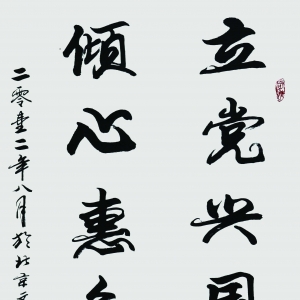 立党兴国
倾心惠
二零壹二年八月於北京